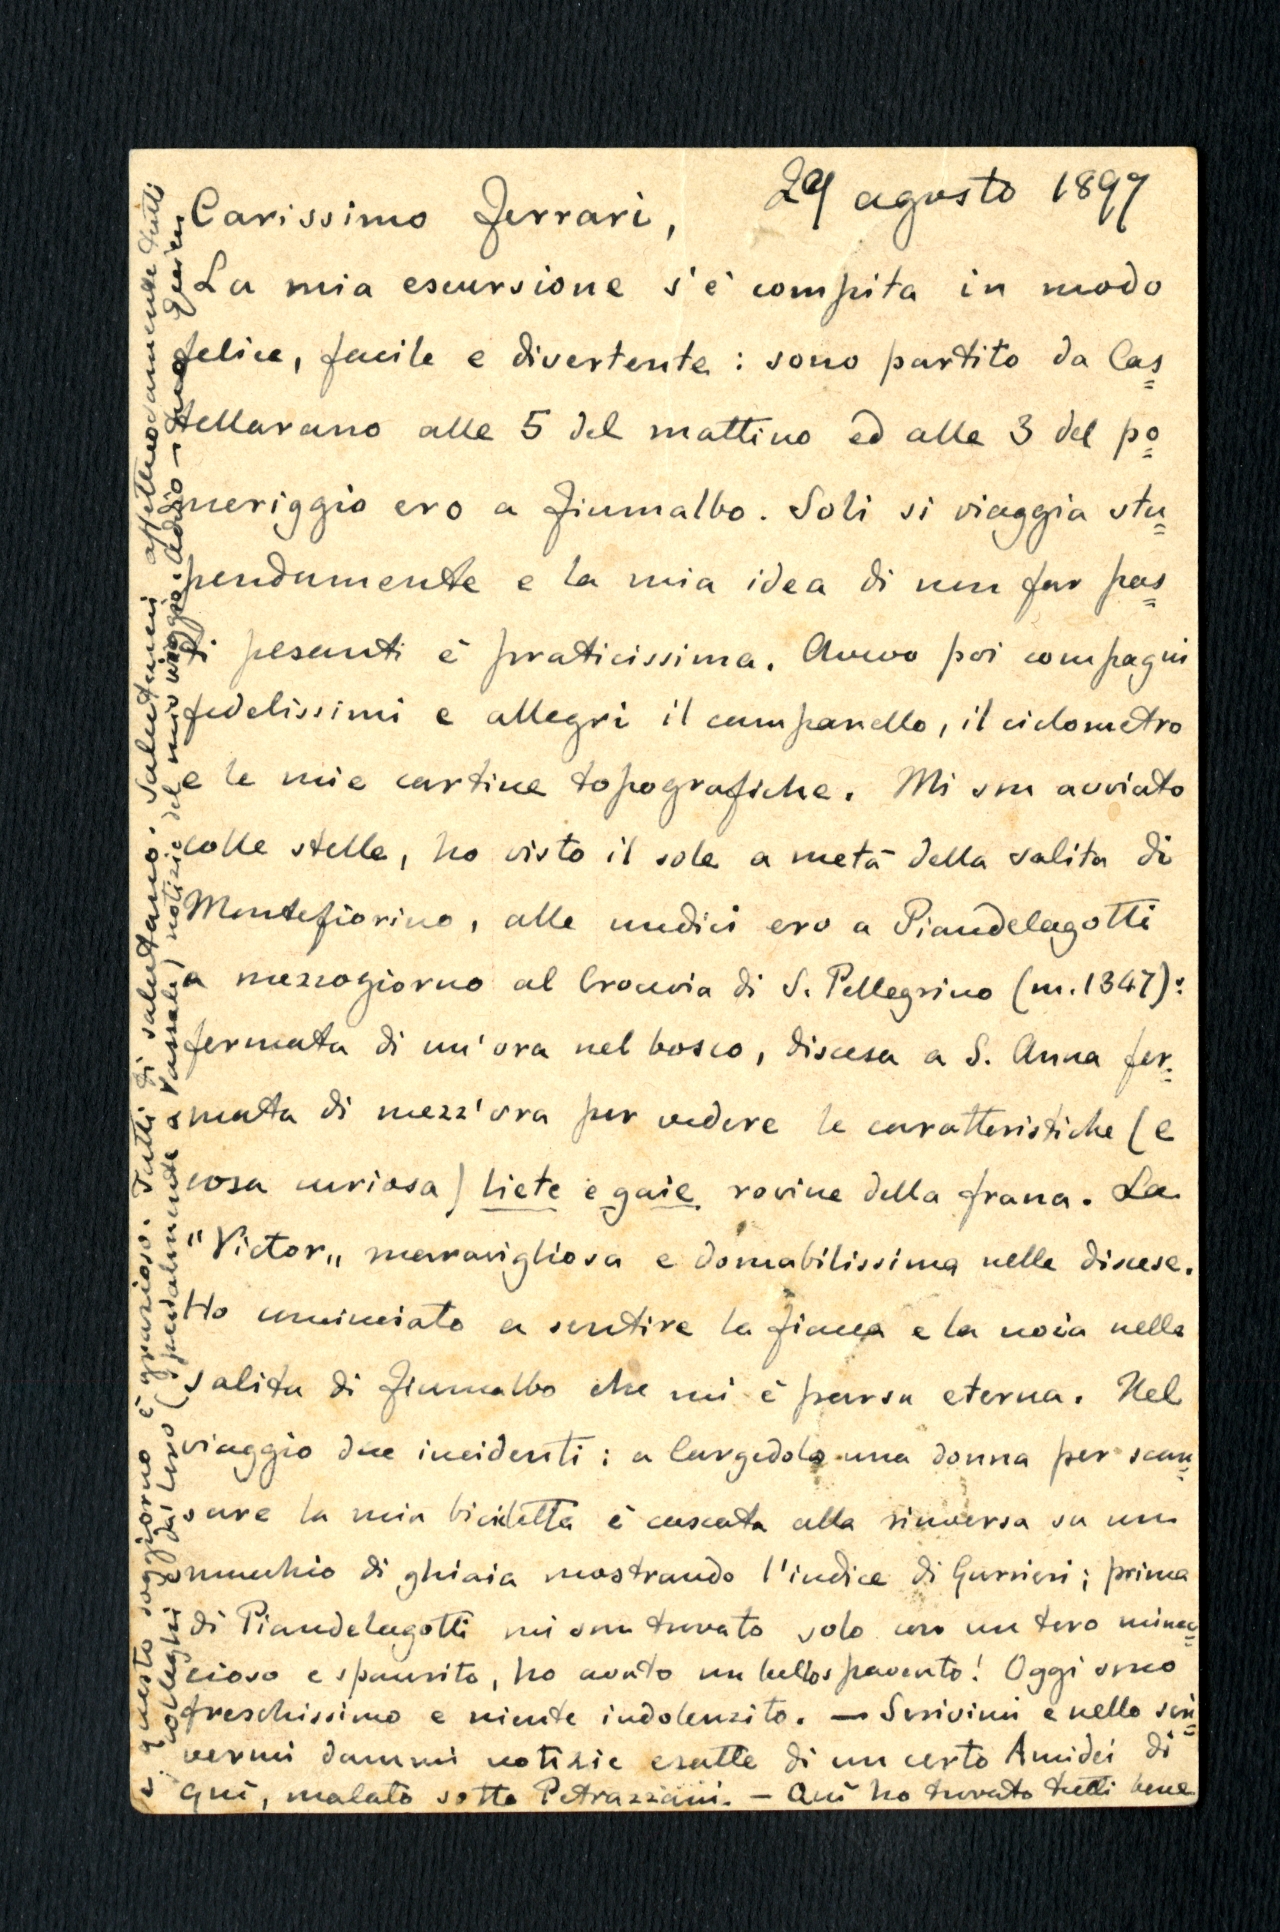 29 agosto 1897
Carissimo Ferrari,
La mia escursione s'è compita in modo
felice, facile e divertente : sono partito da Cas=
tellarano alle 5 del mattino ed alle 3 del po=
meriggio ero a Fiumalbo. Soli si viaggia stu=
pendamente e la mia idea di non far pas=
ti pesanti è praticissima. Avevo poi compagni
fedelissimi e allegri il campanello, il ciclometro
e le mie cartine topografiche. Mi son avviato
colle stelle, ho visto il sole a metà della salita di
Montefiorino, alle undici ero a Piandelagotti
a mezzogiorno al Crocivia di S. Pellegrino (m. 1347):
fermata di un'ora nel bosco, discesa a S. Anna fer=
mata di mezz'ora per vedere le caratteristiche (e
cosa curiosa) liete e gaie rovine della frana. La
"Victor„ meravigliosa e domabilissima nelle discese.
Ho cominciato a sentire la fiacca e la noia nella
salita di Fiumalbo che mi è parsa eterna. Nel
viaggio due incidenti : a Cargedolo una donna per scan=
sare la mia bicicletta è cascata alla rinversa su un
mucchio di ghiaia mostrando l'indice di Gurrieri ; prima
di Piandelagotti mi son trovato solo con un toro minac=
cioso e spaurito, ho avuto un bello spavento! Oggi sono
freschissimo e niente indolenzito. — Scrivimi e nello scri=
vermi dammi notizie esatte di un certo Amidei di
qui, malato sotto Petrazzani. — Qui ho trovato tutti bene
e questo soggiorno è grazioso. Tutti di salutano. Salutami affettuosamente tutti
colleghi e dai loro (specialmente a Vassale) notizie del mio viaggio. Addio — tuo